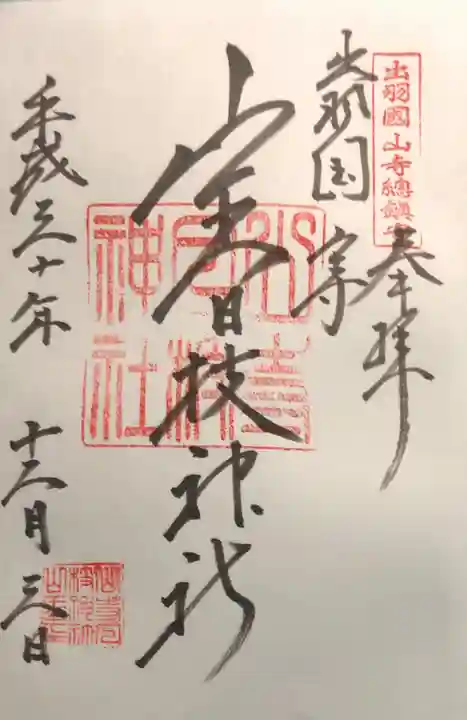 出羽國山寺總鎮守
奉拝
出羽国
山寺日枝神社
山寺日枝神社
平成三十年 十二月 三日